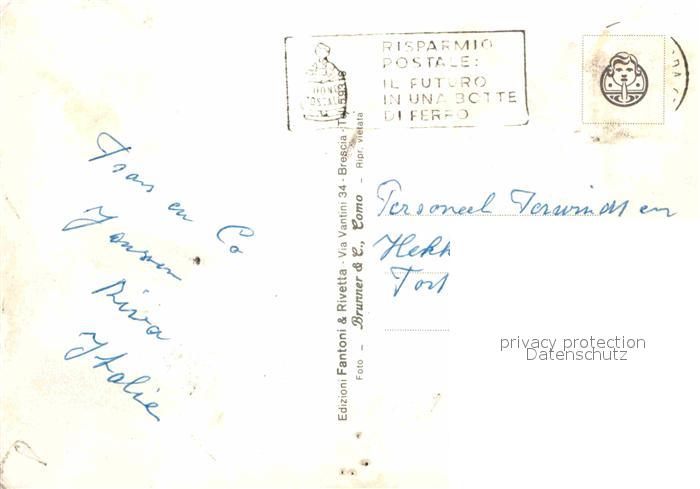 RISPARMIO
POSTALE:
IL FUTURO
IN UNA BOTTE
DI FERRO
Edizioni Fantoni & Rivetta - Via Vantini 34 - Brescia - Tel. 59318
Foto - Brunner & C., Como - Ripr. vietata
en Co
Jansen
Riva
Ytalie
Personeel Terwindt en
Hekk
privacy protection
Datenschutz